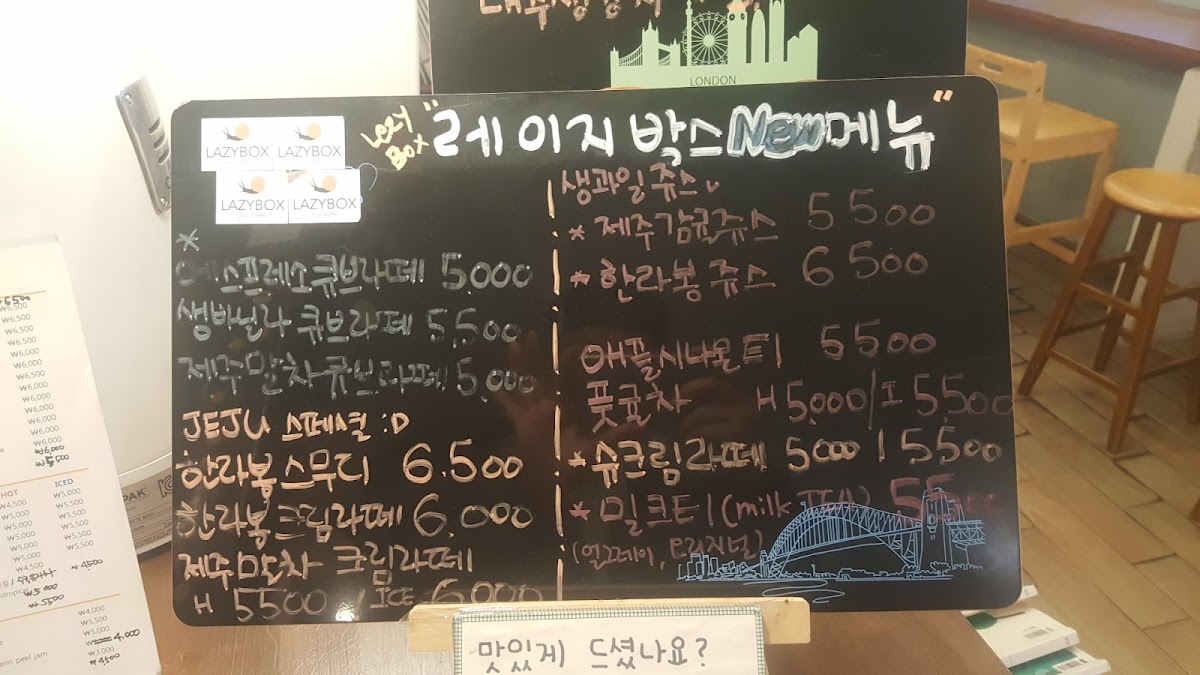 LONDON
Lazy Box "레이지박스 New 메뉴"
LAZYBOX LAZYBOX
LAZYBOX LAZYBOX
*
에스프레소큐브라떼 5.000
생바닐라 큐브라떼 5,500
제주말차큐브라떼 5,000
JEJU 스페셜 :D
한라봉스무디 6.500
한라봉크림라떼 6.000
제주말차 크림라떼
H 5500 / ICE 6.000
생과일쥬스
* 제주감귤쥬스 5500
* 한라봉쥬스 6500
애플시나몬티 5500
풋귤차 H 5,000/I 5,500
* 슈크림라떼 5000 / 5500
* 밀크티 (milk TEA) 5500
(얼그레이, 오리지널)
맛있게 드셨나요?
6500
₩6,500
₩6,500
₩6,500
₩6,000
₩6,500
₩6,000
₩6,000
₩6,000
₩6,000
₩6,000
₩5500
HOT ICED
₩4,500 ₩5,000
₩5,000 ₩5,500
₩5,000 ₩5,500
₩5,000 ₩5,500
₩5,000 ₩5,500
₩4500
₩5.000
₩5500
₩4,000
₩5,000
₩5,000
4,000
₩3,000
erin peel jam ₩4,500